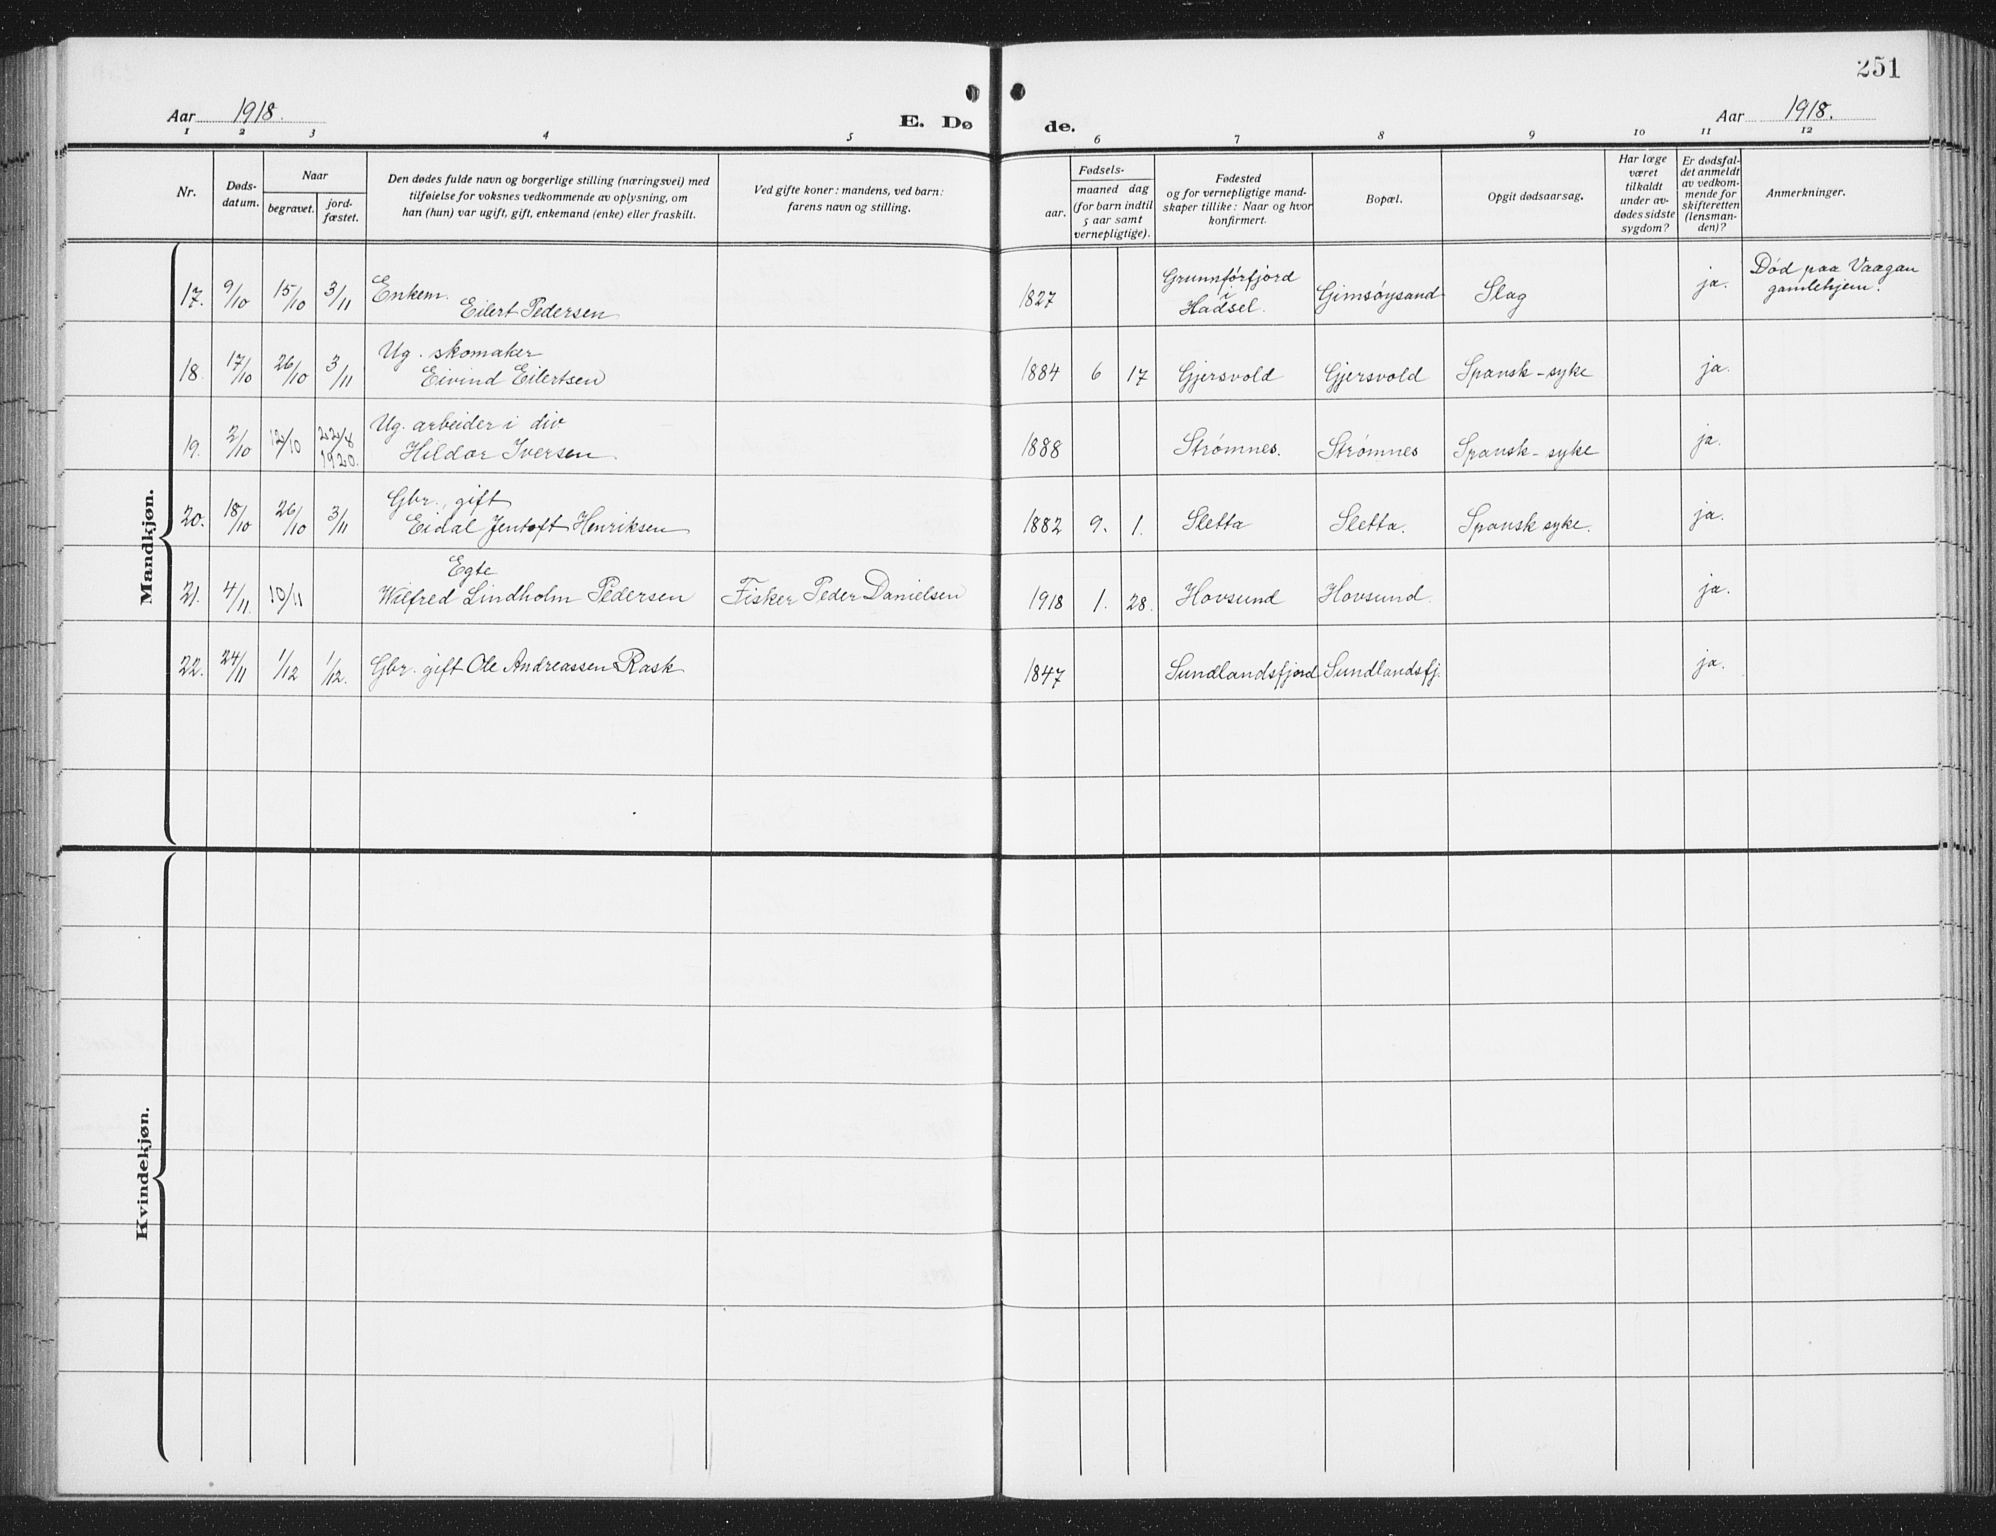 251
Aar 1918.
E. Dø
de.
Aar 1918.
1 2 3 4 5 6 7 8 9 10 11 12
Nr.
Døds-
datum.
Naar
begravet.
jord-
fæstet.
Den dødes fulde navn og borgerlige stilling (næringsvei) med
tilføielse for voksnes vedkommende av oplysning, om
han (hun) var ugift, gift, enkemand (enke) eller fraskilt.
Ved gifte koner: mandens, ved barn:
farens navn og stilling.
Fødsels-
aar.
maaned dag
(for barn indtil
5 aar samt
vernepligtige).
Fødested
og for vernepligtige mand-
skaper tillike: Naar og hvor
konfirmert.
Bopæl.
Opgit dødsaarsag.
Har læge
været
tilkaldt
under av-
dødes sidste
sygdom?
Er dødsfal-
det anmeldt
av vedkom-
mende for
skifteretten
(lensman-
den)?
Anmerkninger.
Mandkjøn.
17. 9/10 15/10 3/11 Enkem.
Eilert Pedersen
1827 Grunnførfjord
Hadsel. Gimsøysand Slag ja. Død paa Vaagan
gamlehjem.
18. 17/10 26/10 3/11 Ug. skomaker
Eivind Eilertsen
1884 6 17 Gjersvold Gjersvold Spansk-syke ja.
19. 2/10 12/10 22/8
1920. Ug. arbeider i div
Hildor Iversen.
1888 Strømnes. Strømnes Spansk-syke ja.
20. 18/10 26/10 3/11 Gbr., gift
Eidal Jentoft Henriksen
1882 9. 1. Sletta Sletta. Spansk syke. ja.
21. 4/11 10/11 Egte
Wilfred Lindholm Pedersen Fisker Peder Danielsen
1918 1. 28. Hovsund Hovsund. ja.
22. 24/11 1/12 1/12. Gbr. gift Ole Andreassen Rask
1847 Sundlandsfjord Sundlandsfj. ja.
Kvindekjøn.